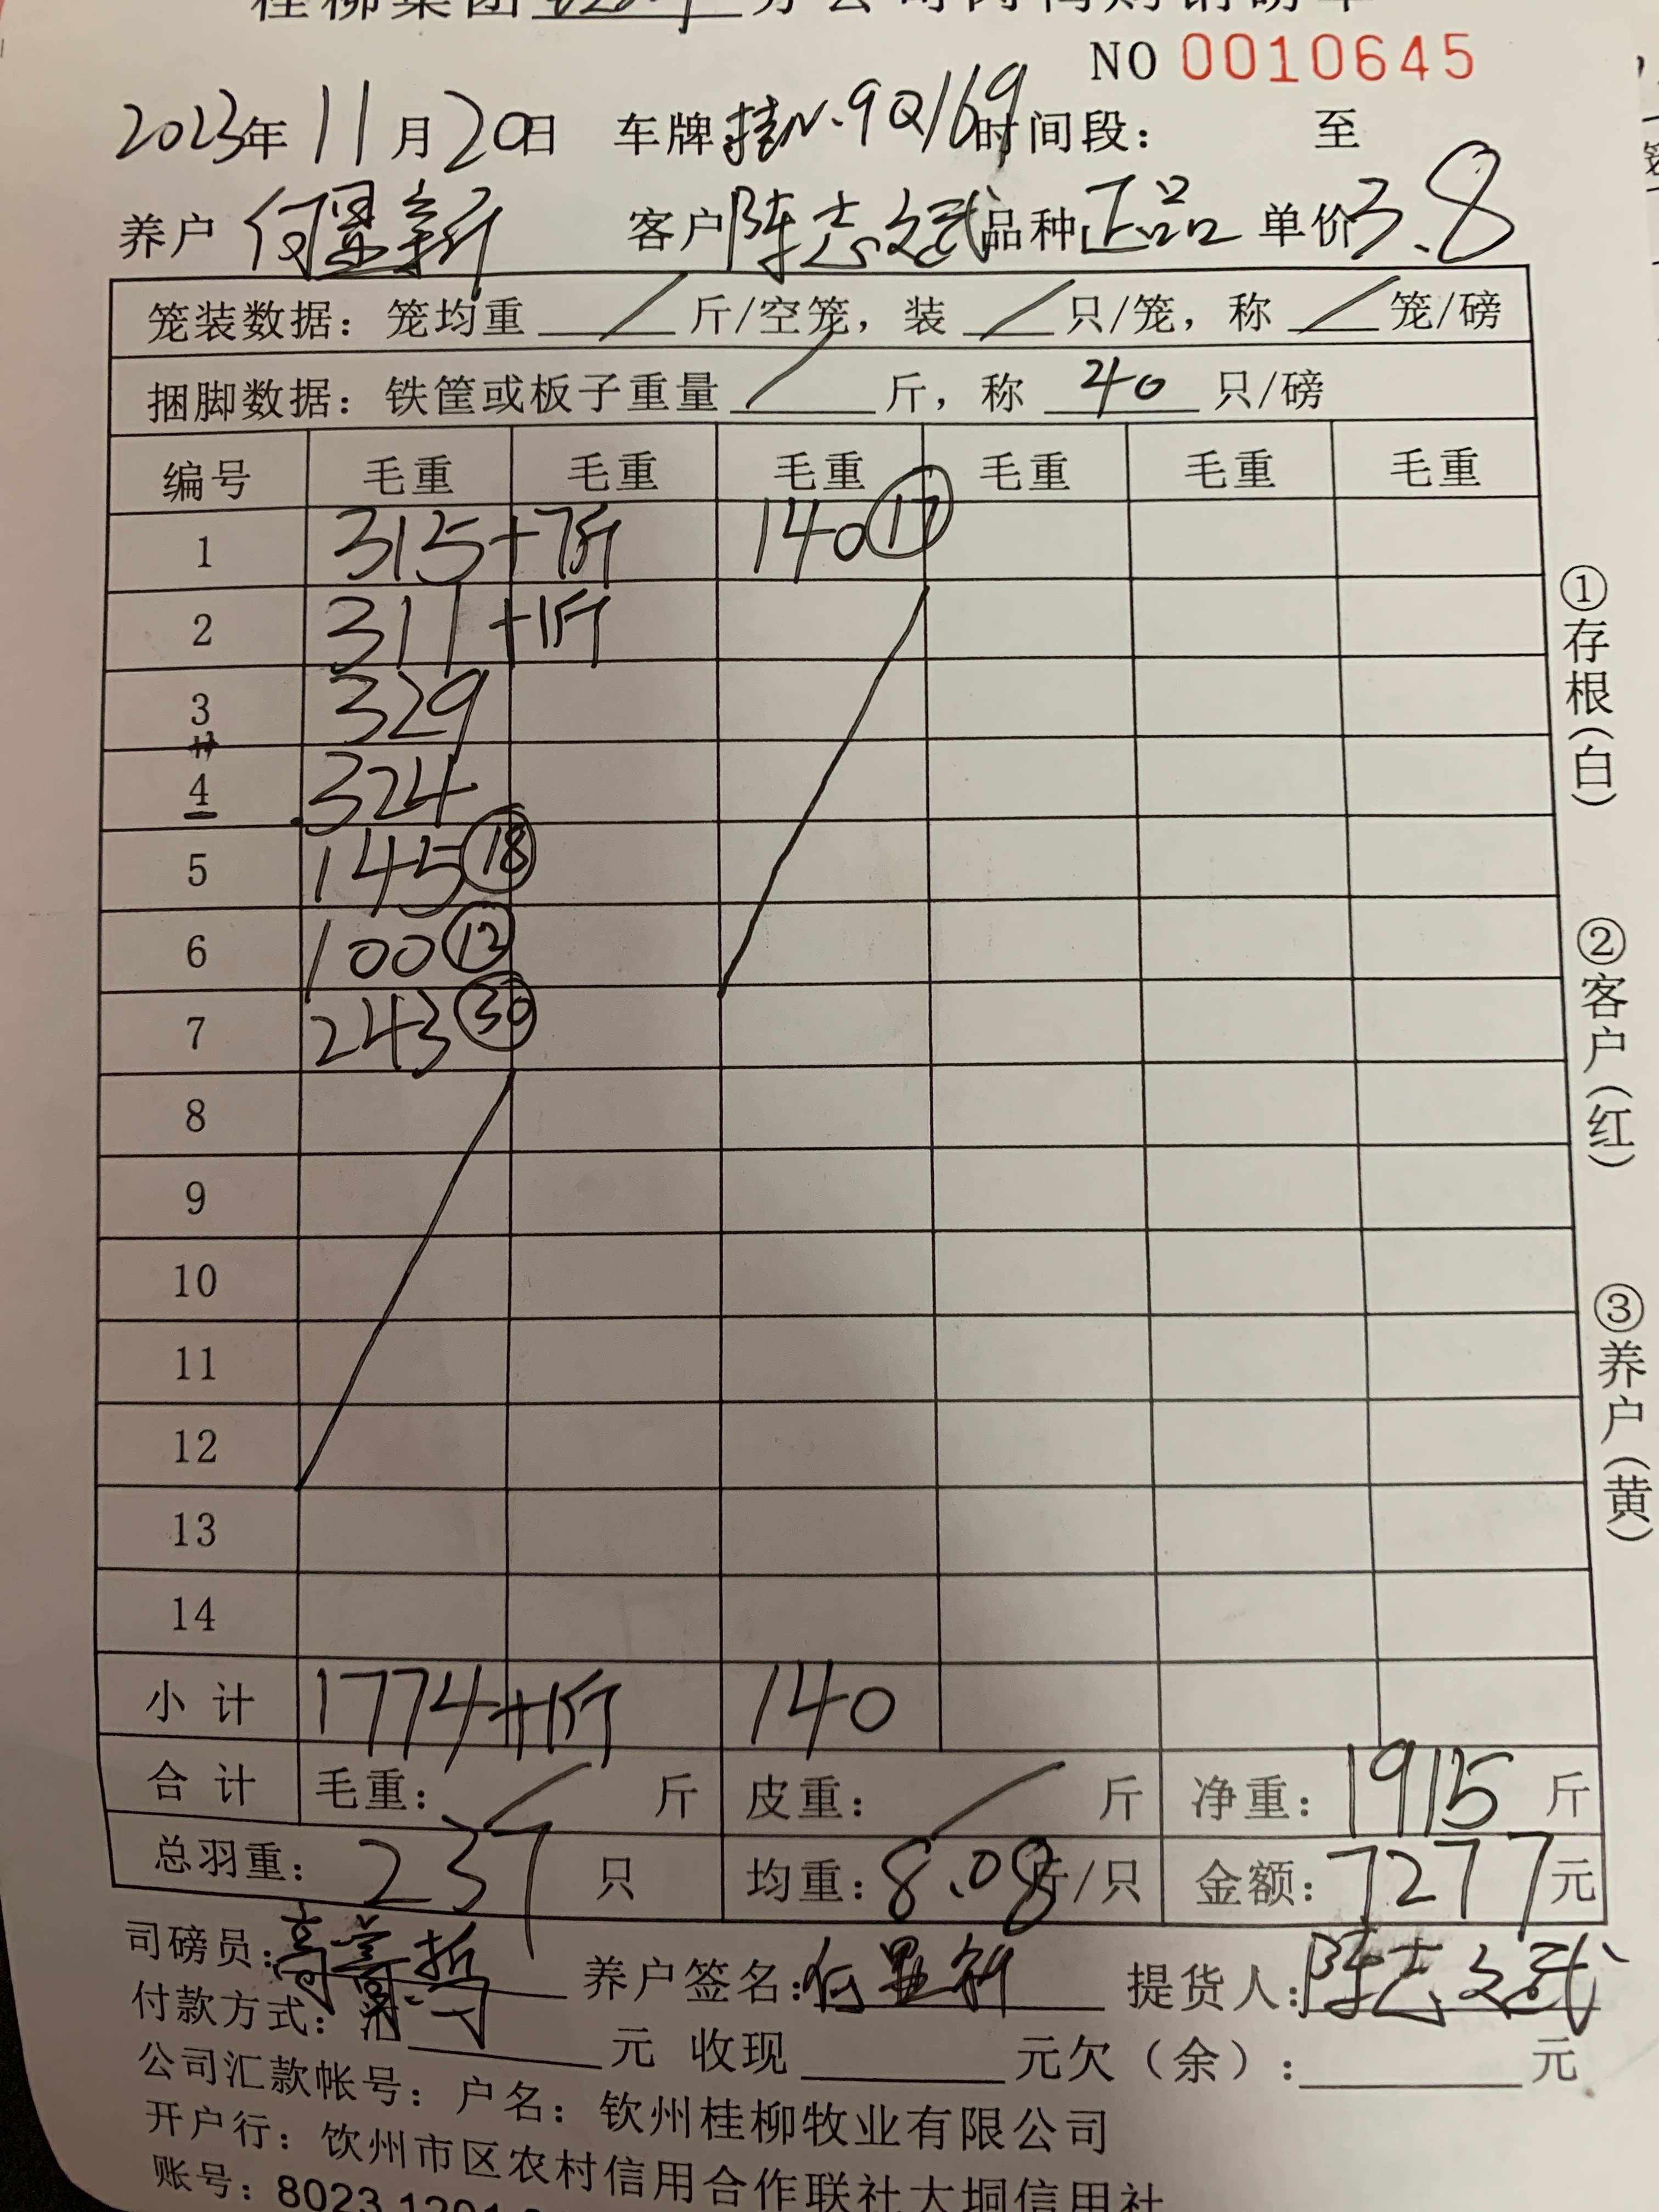 桂柳集团 分公司肉鸭购销磅单
NO 0010645
2023年 11月 20日 车牌 桂N.9Q169 时间段： 至
养户 何显新 客户 陈志斌 品种 正品 单价 3.8
笼装数据：笼均重 / 斤/空笼，装 / 只/笼，称 / 笼/磅
捆脚数据：铁筐或板子重量 / 斤，称 40 只/磅
编号 毛重 毛重 毛重 毛重 毛重 毛重
1 315 +7斤 140 ⑰
2 311 +1斤
3 329
4 324
5 145 ⑱
6 100 ⑫
7 243 ㉚
8
9
10
11
12
13
14
小计 1774 +1斤 140
合计 毛重： / 斤 皮重： / 斤 净重：1915 斤
总羽重：237 只 均重：8.08 斤/只 金额：7277 元
司磅员： 养户签名：何显新 提货人：陈志斌
付款方式：汇 元 收现 元欠（余）： 元
公司汇款帐号：户名：钦州桂柳牧业有限公司
开户行：钦州市区农村信用合作联社大垌信用社
账号：8023 1201
①存根（白）
②客户（红）
③养户（黄）